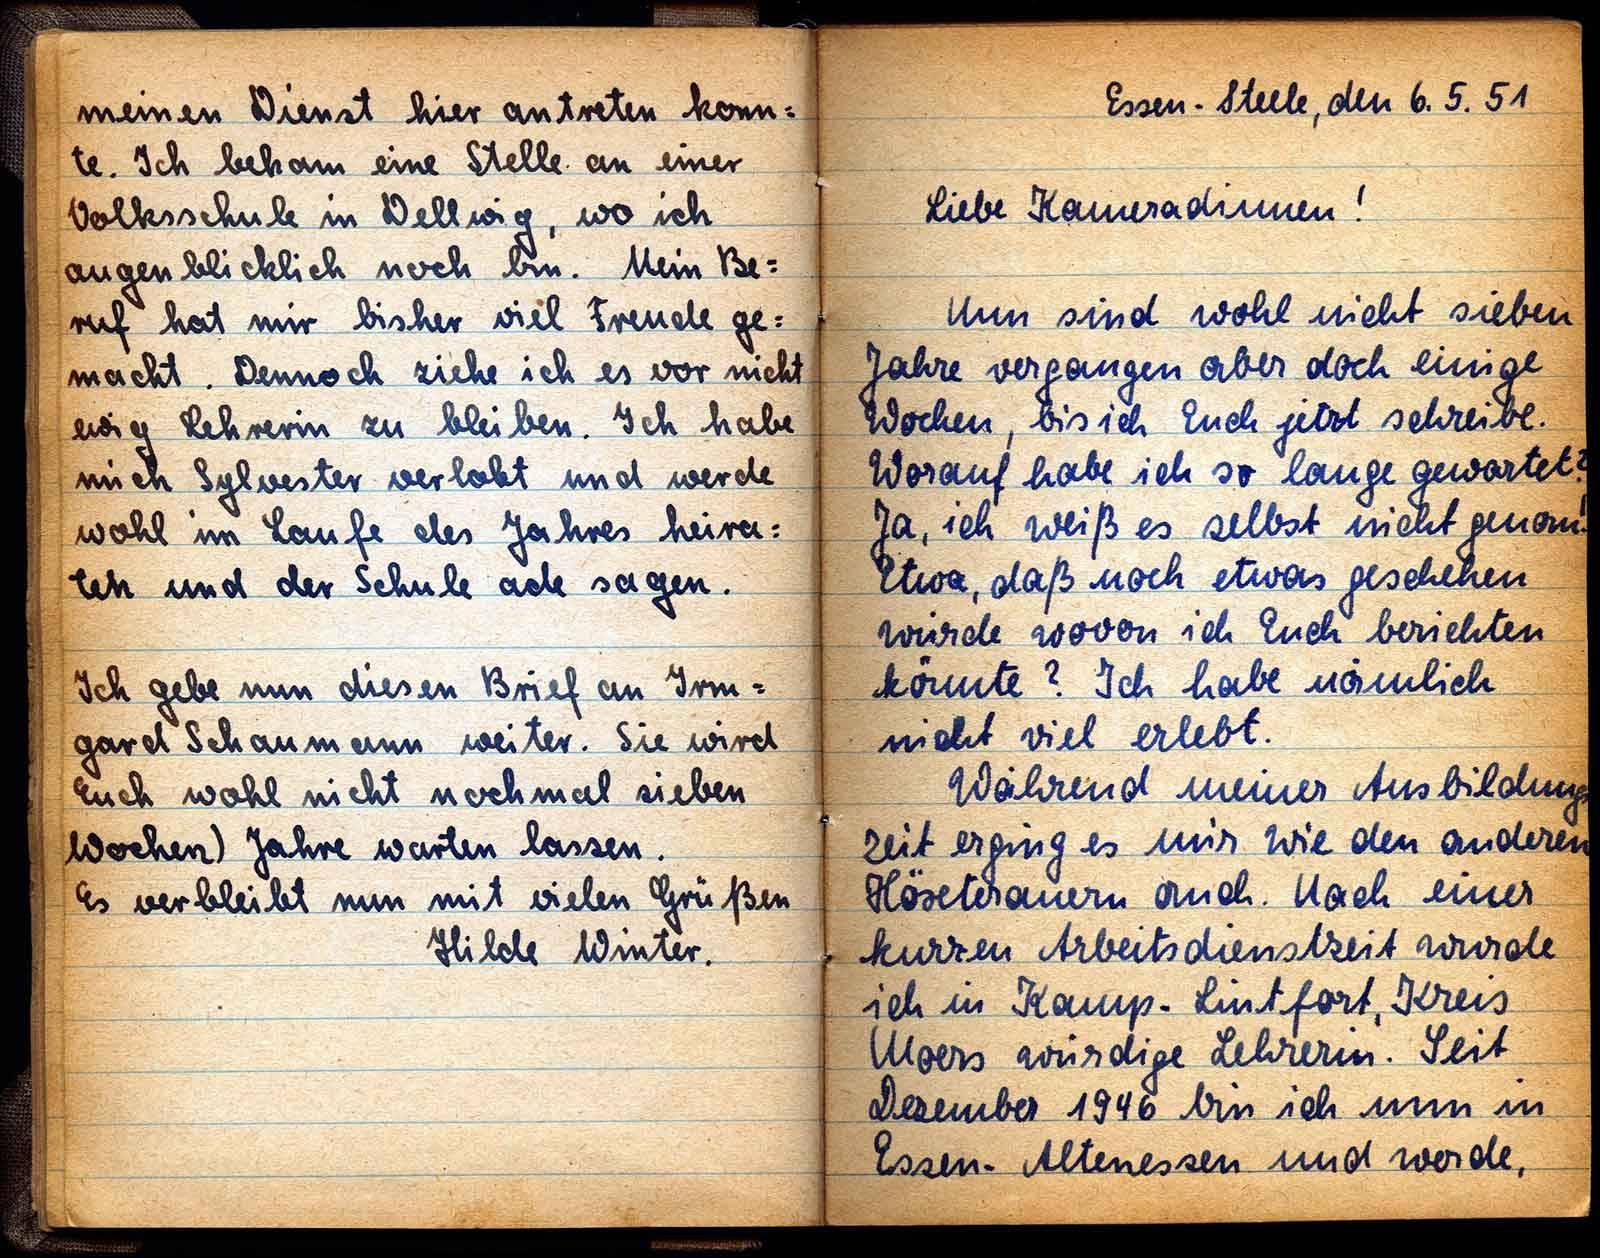 meinen Dienst hier antreten konn=
te. Ich bekam eine Stelle an einer
Volksschule in Dellwig, wo ich
augenblicklich noch bin. Mein Be=
ruf hat mir bisher viel Freude ge=
macht. Dennoch ziehe ich es vor nicht
ewig Lehrerin zu bleiben. Ich habe
mich Sylvester verlobt und werde
wohl im Laufe des Jahres heira=
ten und der Schule ade sagen.
Ich gebe nun diesen Brief an Irm=
gard Schaumann weiter. Sie wird
Euch wohl nicht nochmal sieben
Wochen) Jahre warten lassen.
Es verbleibt nun mit vielen Grüßen
Hilde Winter.
Essen-Steele, den 6. 5. 51
Liebe Kameradinnen!
Nun sind wohl nicht sieben
Jahre vergangen aber doch einige
Wochen, bis ich Euch jetzt schreibe.
Worauf habe ich so lange gewartet?
Ja, ich weiß es selbst nicht genau!
Etwa, daß noch etwas geschehen
würde wovon ich Euch berichten
könnte? Ich habe nämlich
nicht viel erlebt.
Während meiner Ausbildungs
zeit erging es mir wie den anderen
auch. Nach einer
kurzen Arbeitsdienstzeit wurde
ich in Kamp-Lintfort, Kreis
Moers würdige Lehrerin. Seit
Dezember 1946 bin ich nun in
Essen-Altenessen und werde,